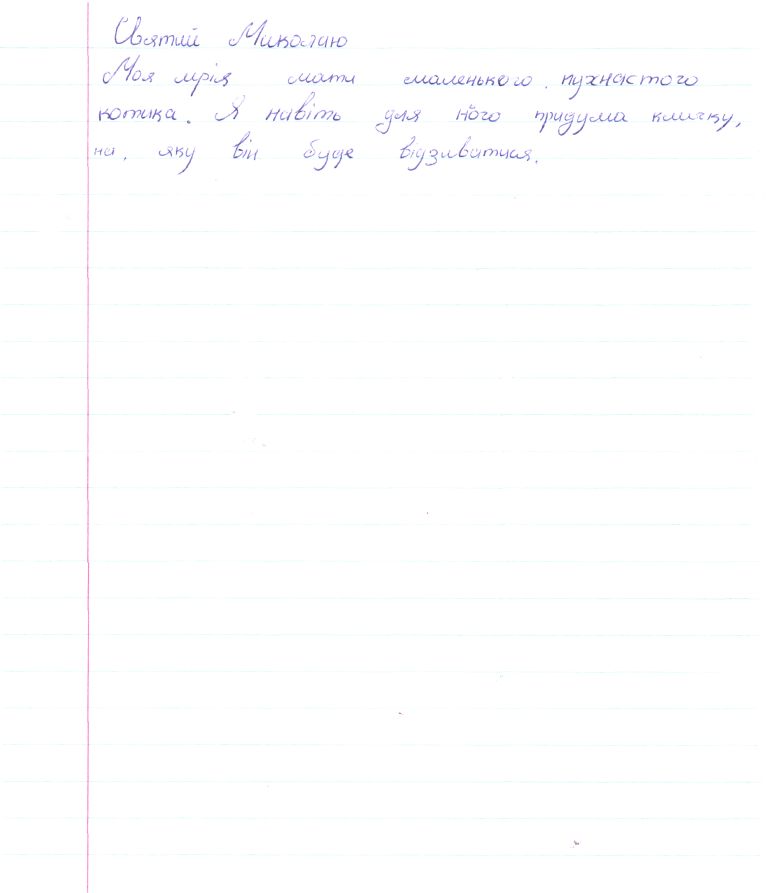 Святий Миколаю
Моя мрія мати маленького, пухнастого
котика. Я навіть для нього придума кличку,
на, яку він буде відзиватися.